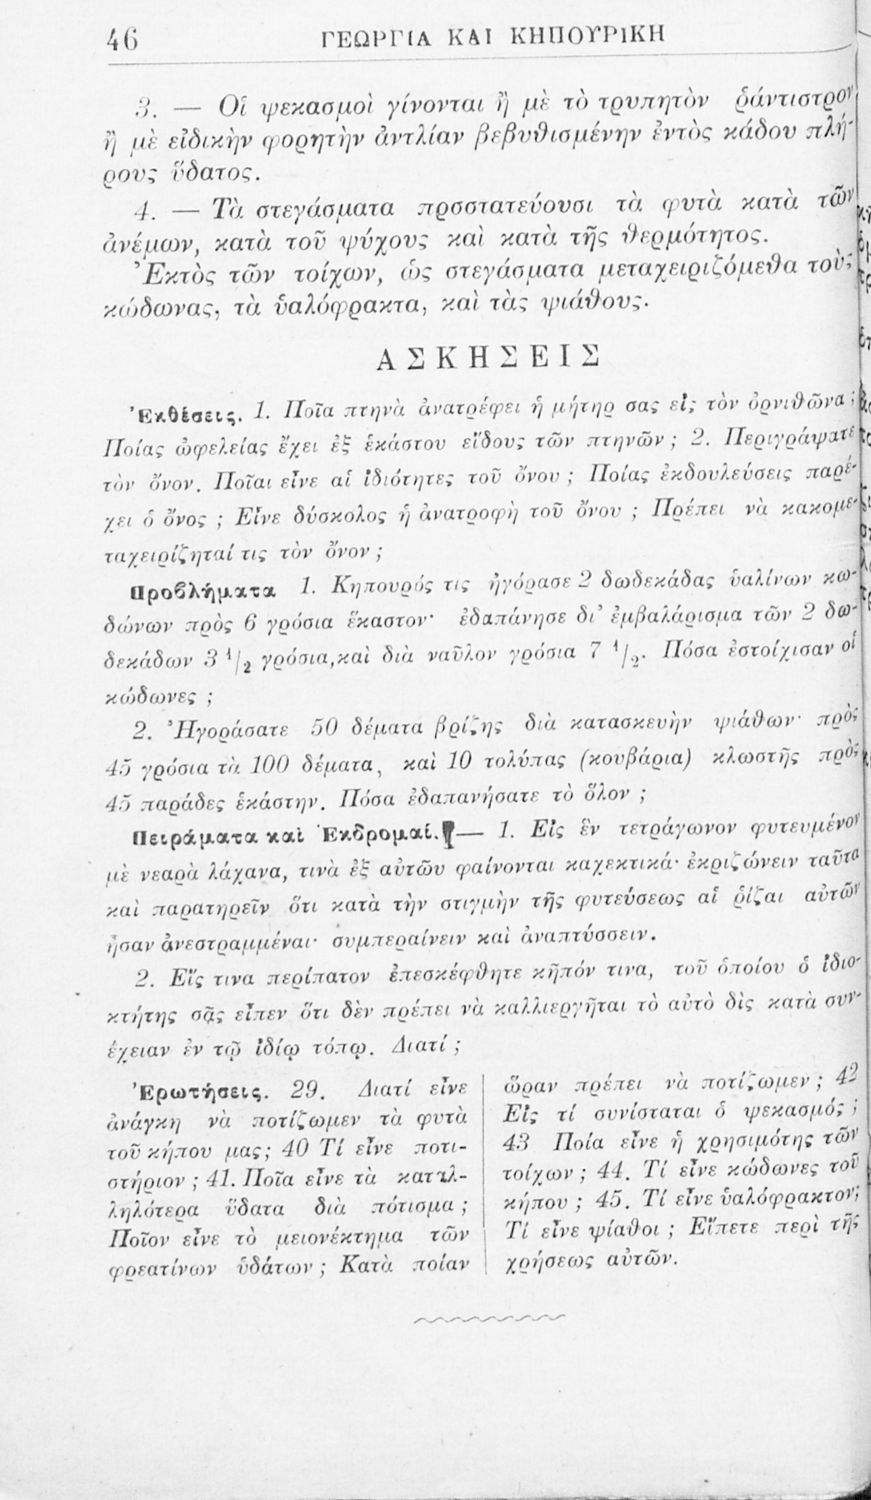 46 ΓΕΩΡΓΙΑ ΚΑΙ ΚΗΠΟΥΡΙΚΗ
3. — Οἱ ψεκασμοὶ γίνονται ἢ μὲ τὸ τρυπητὸν ῥάντιστρον
ἢ μὲ εἰδικὴν φορητὴν ἀντλίαν βεβυθισμένην ἐντὸς κάδου πλή-
ρους ὕδατος.
4. — Τὰ στεγάσματα προστατεύουσι τὰ φυτὰ κατὰ τῶν
ἀνέμων, κατὰ τοῦ ψύχους καὶ κατὰ τῆς θερμότητος.
Ἐκτὸς τῶν τοίχων, ὡς στεγάσματα μεταχειριζόμεθα τοὺς
κώδωνας, τὰ ὑαλόφρακτα, καὶ τὰς ψιάθους.
ΑΣΚΗΣΕΙΣ
Ἐκθέσεις. 1. Ποῖα πτηνὰ ἀνατρέφει ἡ μήτηρ σας εἰς τὸν ὀρνιθῶνα ;
Ποίας ὠφελείας ἔχει ἐξ ἑκάστου εἴδους τῶν πτηνῶν ; 2. Περιγράψατε
τὸν ὄνον. Ποῖαι εἶνε αἱ ἰδιότητες τοῦ ὄνου ; Ποίας ἐκδουλεύσεις παρέ-
χει ὁ ὄνος ; Εἶνε δύσκολος ἡ ἀνατροφὴ τοῦ ὄνου ; Πρέπει νὰ κακομε-
ταχειρίζηταί τις τὸν ὄνον ;
Προβλήματα 1. Κηπουρός τις ἠγόρασε 2 δωδεκάδας ὑαλίνων κω-
δώνων πρὸς 6 γρόσια ἕκαστον· ἐδαπάνησε δι’ ἐμβαλάρισμα τῶν 2 δω-
δεκάδων 3 1/2 γρόσια,καὶ διὰ ναῦλον γρόσια 7 1/2. Πόσα ἐστοίχισαν οἱ
κώδωνες ;
2. Ἠγοράσατε 50 δέματα βρίζης διὰ κατασκευὴν ψιάθων· πρὸς
45 γρόσια τὰ 100 δέματα, καὶ 10 τολύπας (κουβάρια) κλωστῆς πρὸς
45 παράδες ἑκάστην. Πόσα ἐδαπανήσατε τὸ ὅλον ;
Πειράματα καὶ Ἐκδρομαί. — 1. Εἰς ἓν τετράγωνον φυτευμένον
μὲ νεαρὰ λάχανα, τινὰ ἐξ αὐτῶν φαίνονται καχεκτικά· ἐκριζώνειν ταῦτα
καὶ παρατηρεῖν ὅτι κατὰ τὴν στιγμὴν τῆς φυτεύσεως αἱ ῥίζαι αὐτῶν
ἦσαν ἀνεστραμμέναι· συμπεραίνειν καὶ ἀναπτύσσειν.
2. Εἴς τινα περίπατον ἐπεσκέφθητε κῆπόν τινα, τοῦ ὁποίου ὁ ἰδιο-
κτήτης σᾶς εἶπεν ὅτι δὲν πρέπει νὰ καλλιεργῆται τὸ αὐτὸ δὶς κατὰ συν-
έχειαν ἐν τῷ ἰδίῳ τόπῳ. Διατί ;
Ἐρωτήσεις. 29. Διατί εἶνε
ἀνάγκη νὰ ποτίζωμεν τὰ φυτὰ
τοῦ κήπου μας; 40 Τί εἶνε ποτι-
στήριον ; 41. Ποῖα εἶνε τὰ καταλ-
ληλότερα ὕδατα διὰ πότισμα ;
Ποῖον εἶνε τὸ μειονέκτημα τῶν
φρεατίνων ὑδάτων ; Κατὰ ποίαν
ὥραν πρέπει νὰ ποτίζωμεν ; 42
Εἰς τί συνίσταται ὁ ψεκασμός ;
43 Ποία εἶνε ἡ χρησιμότης τῶν
τοίχων ; 44. Τί εἶνε κώδωνες τοῦ
κήπου ; 45. Τί εἶνε ὑαλόφρακτον;
Τί εἶνε ψίαθοι ; Εἴπετε περὶ τῆς
χρήσεως αὐτῶν.